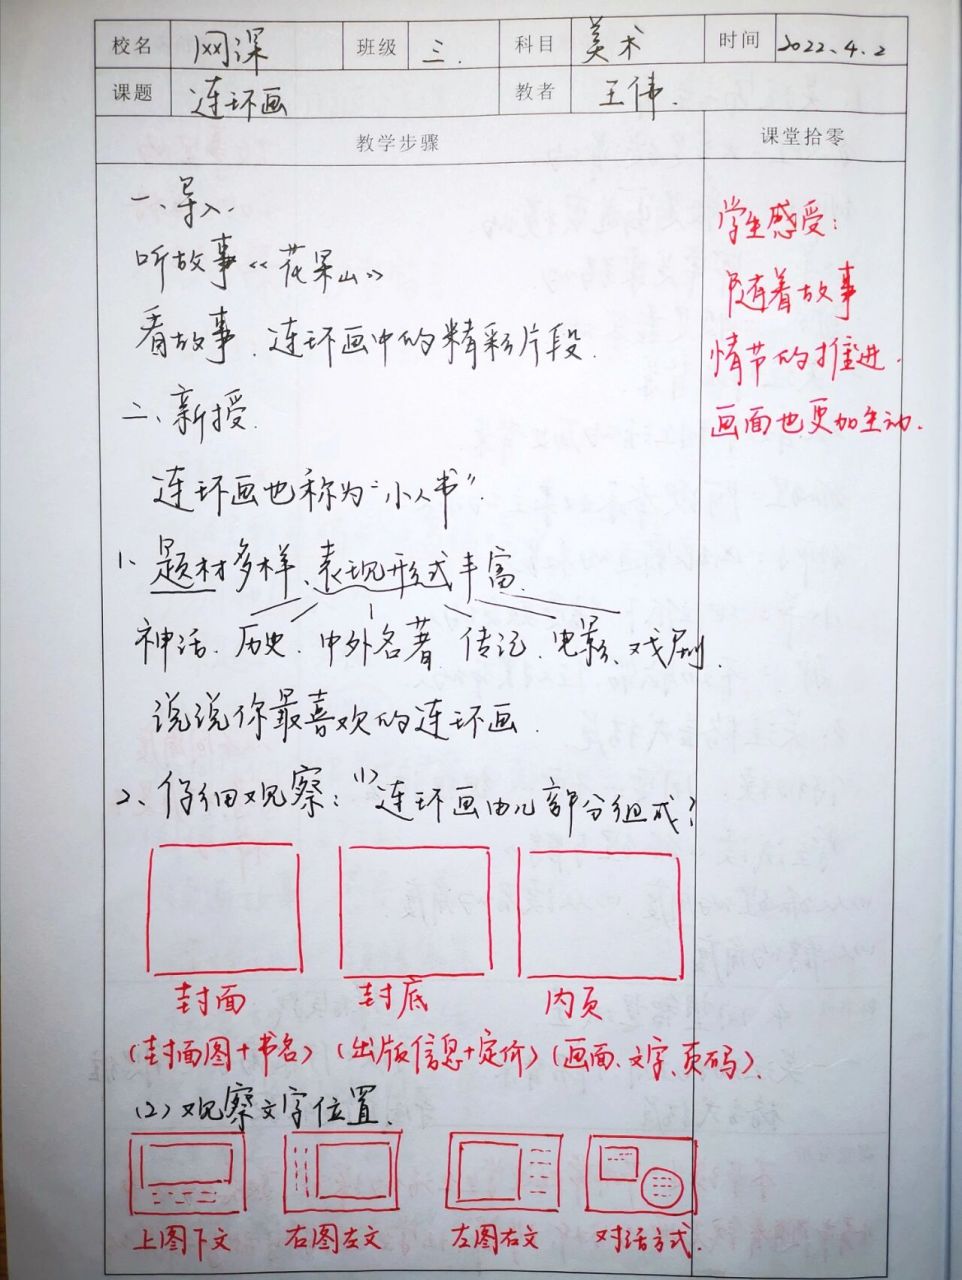 校名 网课 班级 三. 科目 美术 时间 2022.4.2
课题 连环画 教者 王伟.
教学步骤 课堂拾零
一、导入
听故事《花果山》
看故事、连环画中的精彩片段.
二、新授.
连环画也称为“小人书”.
1、题材多样、表现形式丰富.
神话、历史、中外名著、传记、电影、戏剧.
说说你最喜欢的连环画.
2、仔细观察:(1)连环画由几部分组成?
封面 封底 内页
(封面图+书名)(出版信息+定价)(画面、文字、页码).
(2)观察文字位置.
上图下文 右图左文 左图右文 对话方式.
学生感受:
随着故事
情节的推进.
画面也更加生动.